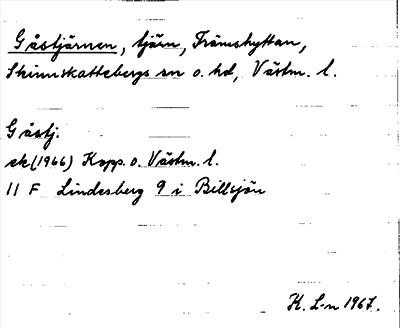 Gåstjärnen, tjärn, Främshyttan,
Skinnskattebergs sn o. hd, Västm. l.
Gåstj.
ek (1966) Kopp. o. Västm. l.
11 F Lindesberg 9 i Billsjön
K. L-n 1967.